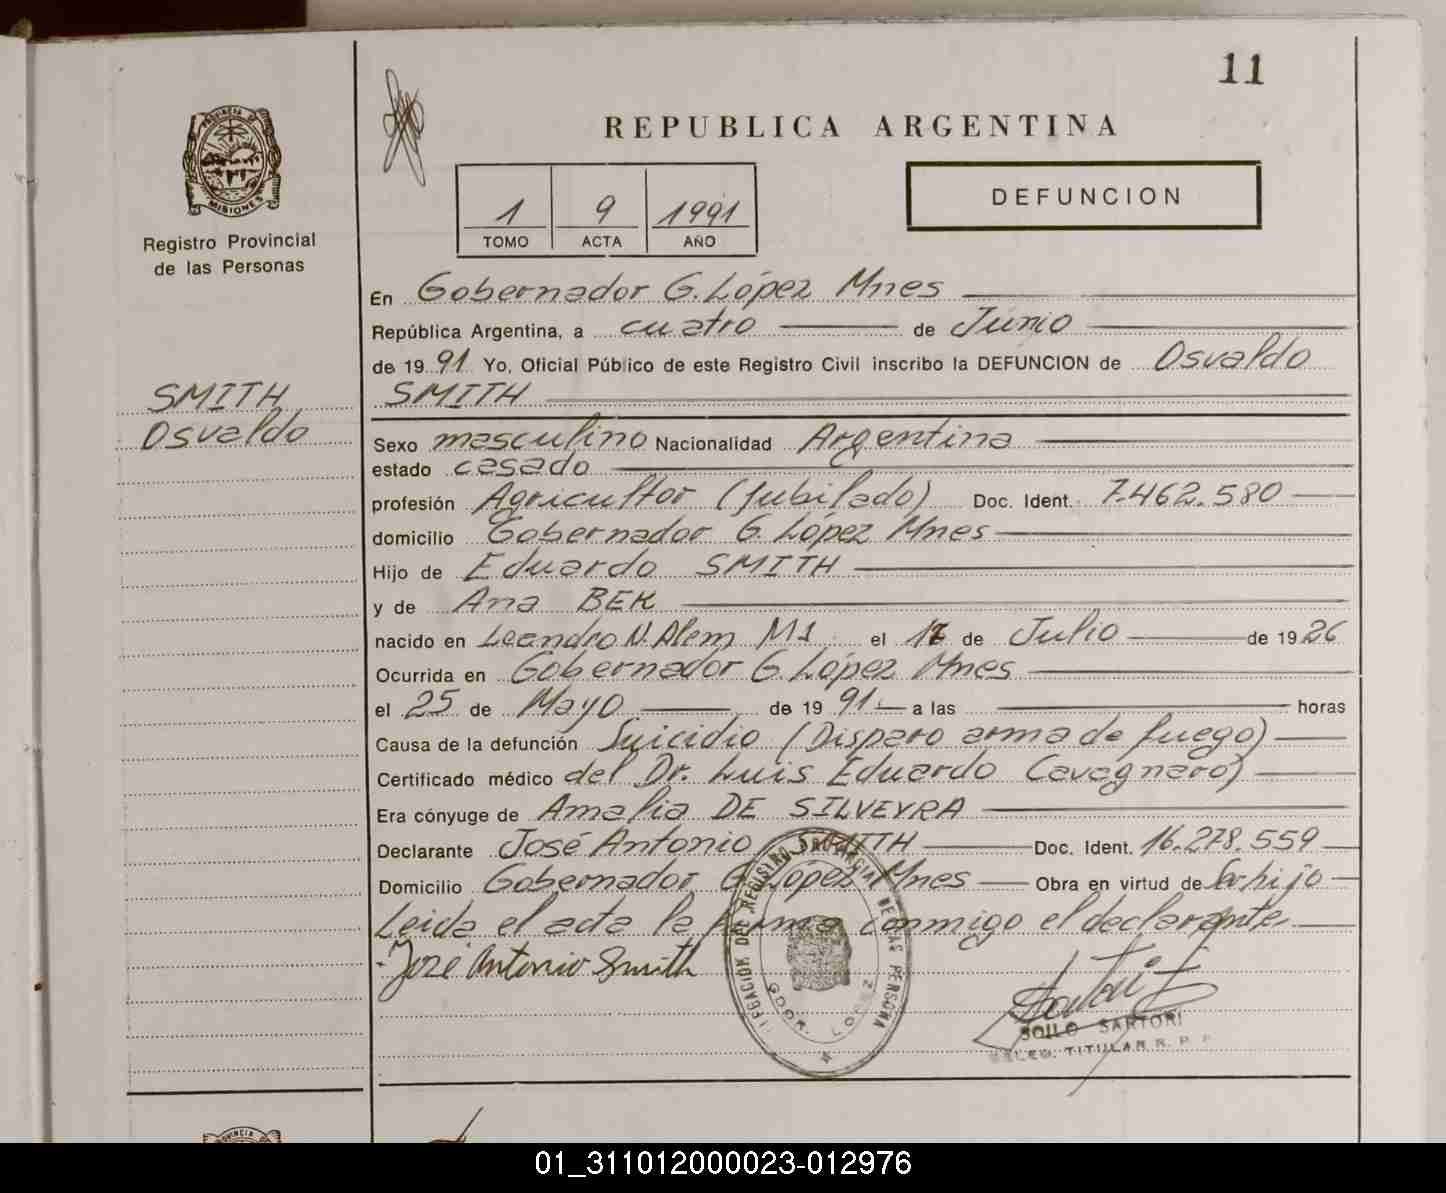 11
PROVINCIA DE
MISIONES
Registro Provincial
de las Personas
REPUBLICA ARGENTINA
1 9 1991
TOMO ACTA AÑO
DEFUNCION
En Gobernador G. López Mnes
República Argentina, a cuatro de Junio
de 1991 Yo, Oficial Público de este Registro Civil inscribo la DEFUNCION de Osvaldo
SMITH
SMITH
Osvaldo
Sexo masculino Nacionalidad Argentina
estado casado
profesión Agricultor (Jubilado) Doc. Ident. 7.462.580
domicilio Gobernador G. López Mnes
Hijo de Eduardo SMITH
y de Ana BEK
nacido en Leandro N. Alem, Ms el de Julio de 1926
Ocurrida en Gobernador G. López Mnes
el 25 de Mayo de 1991 a las horas
Causa de la defunción Suicidio (Disparo arma de fuego)
Certificado médico del Dr. Luis Eduardo Cavagnaro)
Era cónyuge de Amalia DE SILVEYRA
Declarante José Antonio SMITH Doc. Ident. 16.278.559
Domicilio Gobernador G. López Mnes Obra en virtud de Ser hijo
Leida el acta la firma conmigo el declarante
José Antonio Smith
DELEGACION DEL REGISTRO PROVINCIAL DE LAS PERSONAS
GDOR. LOPEZ
SOILO SARTORI
DELEG. TITULAR R. P. P.
PROVINCIA
01_311012000023-012976